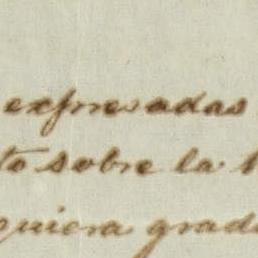 expresadas
to sobre la
quiera grad